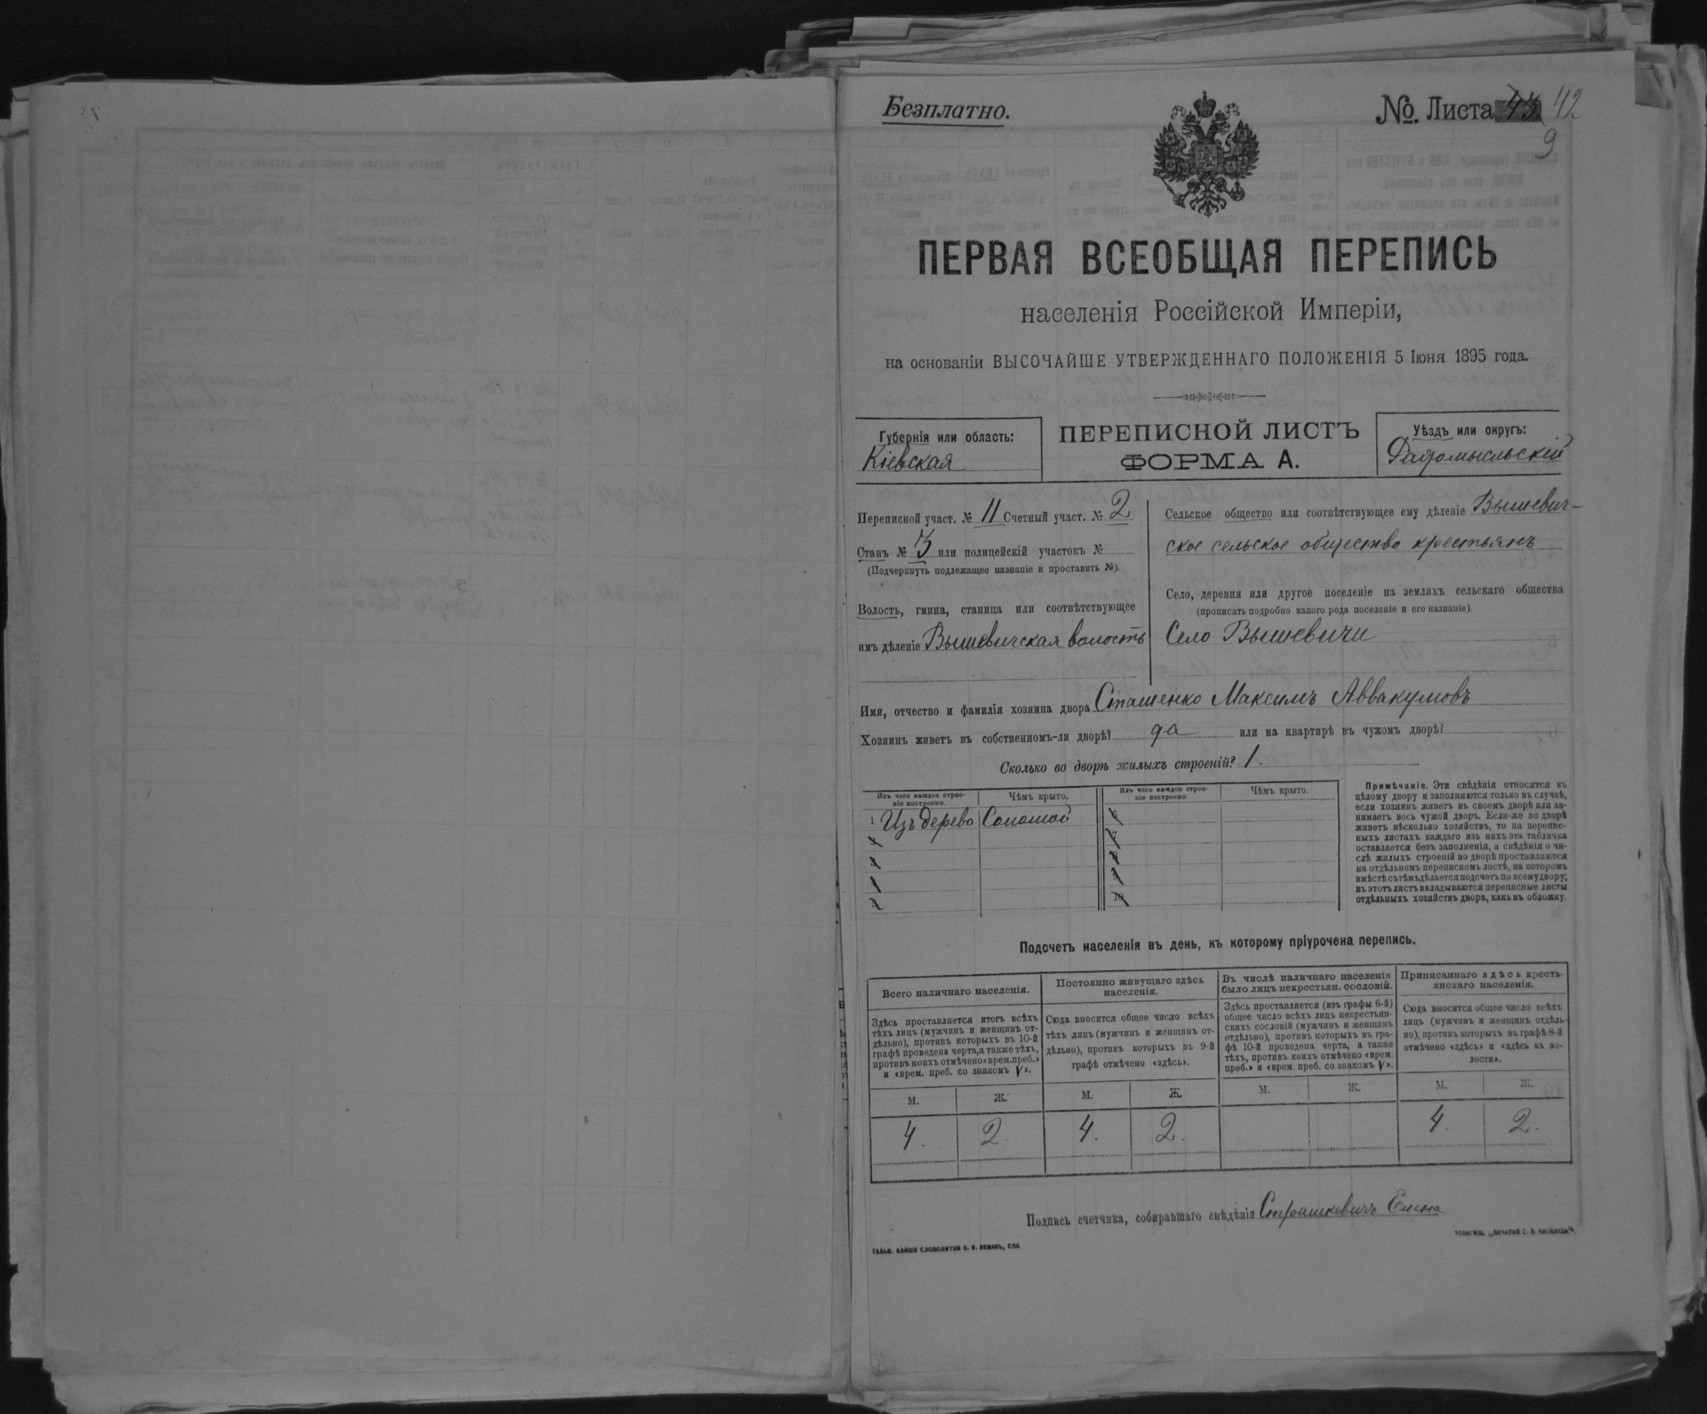 Безплатно.
№. Листа 42
9
ПЕРВАЯ ВСЕОБЩАЯ ПЕРЕПИСЬ
населенія Россійской Имперіи,
на основаніи ВЫСОЧАЙШЕ УТВЕРЖДЕННАГО ПОЛОЖЕНІЯ 5 Іюня 1895 года.
Губернія или область:
Кіевская
ПЕРЕПИСНОЙ ЛИСТЪ
ФОРМА А.
Уѣздъ или округъ:
Радомысльскій
Переписной участ. № 11 Счетный участ. № 2
Станъ № 3 или полицейскій участокъ №
(Подчеркнуть подлежащее названіе и проставить №).
Волость, гмина, станица или соотвѣтствующее
имъ дѣленіе Вышевичская волость
Сельское общество или соотвѣтствующее ему дѣленіе Вышевич-
ское сельское общество крестьянъ
Село, деревня или другое поселеніе на земляхъ сельскаго общества
(прописать подробно какого рода поселеніе и его названіе).
Село Вышевичи
Имя, отчество и фамилія хозяина двора Сташенко Максимъ Аввакумовъ
Хозяинъ живетъ въ собственномъ-ли дворѣ? да или на квартирѣ въ чужомъ дворѣ?
Сколько во дворѣ жилыхъ строеній? 1.
Изъ чего каждое строе-
ніе построено.
Чѣмъ крыто.
Изъ чего каждое строе-
ніе построено.
Чѣмъ крыто.
1 Изъ дерева Соломой
Примѣчаніе. Эти свѣдѣнія относятся къ
цѣлому двору и заполняются только въ случаѣ,
если хозяинъ живетъ въ своемъ дворѣ или за-
нимаетъ весь чужой дворъ. Если-же во дворѣ
живетъ нѣсколько хозяйствъ, то на перепис-
ныхъ листахъ каждаго изъ нихъ эта табличка
оставляется безъ заполненія, а свѣдѣнія о чи-
слѣ жилыхъ строеній во дворѣ проставляются
на отдѣльномъ переписномъ листѣ, на которомъ
вмѣстѣ съ тѣмъ дѣлается подсчетъ по всему двору;
въ этотъ листъ вкладываются переписные листы
отдѣльныхъ хозяйствъ двора, какъ въ обложку.
Подсчетъ населенія въ день, къ которому пріурочена перепись.
Всего наличнаго населенія.
Постоянно живущаго здѣсь
населенія.
Въ числѣ наличнаго населенія
было лицъ некрестьян. сословій.
Приписаннаго здѣсь кресть-
янскаго населенія.
Здѣсь проставляется итогъ всѣхъ
тѣхъ лицъ (мужчинъ и женщинъ от-
дѣльно), противъ которыхъ въ 10-й
графѣ проведена черта, а также тѣхъ,
противъ коихъ отмѣчено «врем. преб.»
и «врем. преб. со знакомъ V».
Сюда вносится общее число всѣхъ
тѣхъ лицъ (мужчинъ и женщинъ от-
дѣльно), противъ которыхъ въ 9-й
графѣ отмѣчено «здѣсь».
Здѣсь проставляется (изъ графы 6-й)
общее число всѣхъ лицъ некрестьян-
скихъ сословій (мужчинъ и женщинъ
отдѣльно), противъ которыхъ въ гра-
фѣ 10-й проведена черта, а также
тѣхъ, противъ коихъ отмѣчено «врем.
преб.» и «врем. преб. со знакомъ V».
Сюда вносится общее число всѣхъ
лицъ (мужчинъ и женщинъ отдѣль-
но), противъ которыхъ въ графѣ 8-й
отмѣчено «здѣсь» и «здѣсь къ во-
лости».
М. Ж. М. Ж. М. Ж. М. Ж.
4. 2. 4. 2. 4. 2.
Подпись счетчика, собиравшаго свѣдѣнія
ГАЛЬВ. КЛИШЕ СЛОВОЛИТНИ О. И. ЛЕМАНЪ, СПБ.